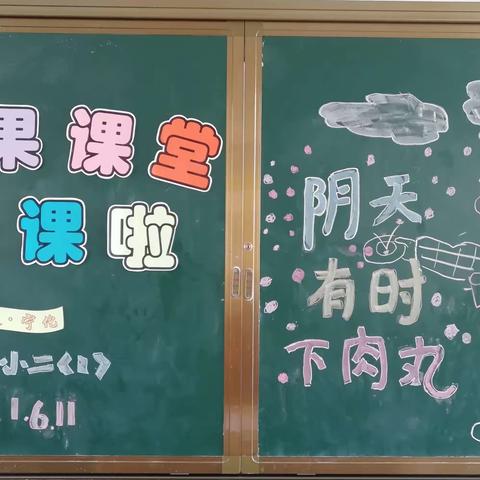 果课堂
课啦
·宁化
小二《1》
1.6.11
阴天
有时
下肉丸